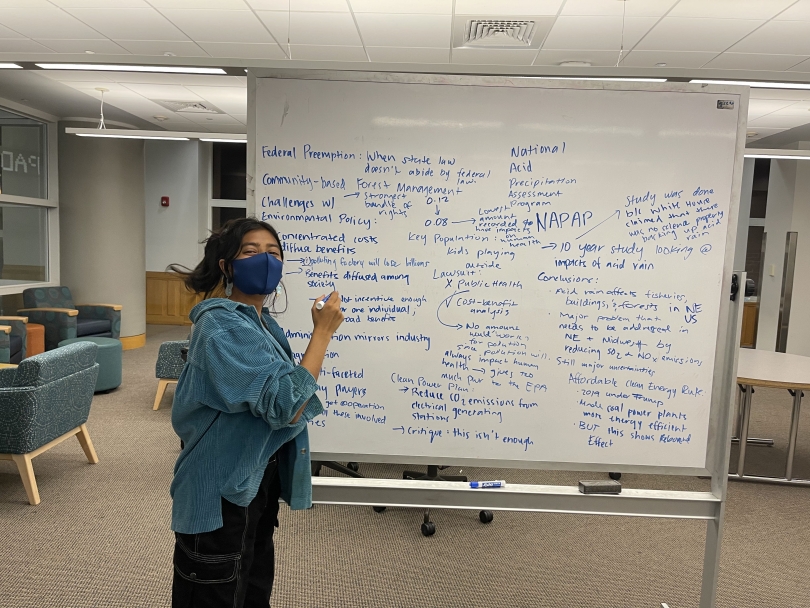 Federal Preemption: When state law
doesn't abide by federal
law.
Community-based Forest Management
Challenges w/
Environmental Policy:
→ strongest
bundle of
rights
0.12
0.08 → Lowest
amount
recorded to
have impacts
on human
health
Key Population:
Kids playing
outside
concentrated costs
diffuse benefits
→ polluting factory will lose billions
→ Benefits diffused among
society
not incentive enough
for one individual,
broad benefits
Administration mirrors industry
multi-faceted
many players
get cooperation
all those involved
Lawsuit:
X Public Health
✓ Cost-benefit
analysis
→ No amount
would work
for pollution
since pollution will
always impact human
health → gives too
much pwr to the EPA
Clean Power Plan:
→ Reduce CO2 emissions from
electrical generating
stations
→ Critique: this isn't enough
National
Acid
Precipitation
Assessment
Program
NAPAP
Study was done
b/c White House
claimed that there
was no science properly
backing up acid
rain
→ 10 year study looking @
impacts of acid rain
Conclusions:
· Acid rain affects fisheries,
buildings, & forests in NE
US
· Major problem that
needs to be addressed in
NE + Midwest by
reducing SO2 + NOx emissions
· Still major uncertainties
Affordable Clean Energy Rule
· 2019 under Trump
· Make coal power plants
more energy efficient
· BUT this shows Rebound
Effect